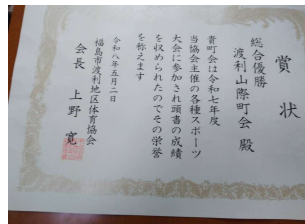 賞状
総合優勝
渡利山際町会 殿
貴町会は令和七年度
当協会主催の各種スポーツ
大会に参加され頭書の成績
を収められたのでその栄誉
を称えます
令和八年五月二日
福島市渡利地区体育協会
会長 上野 寛